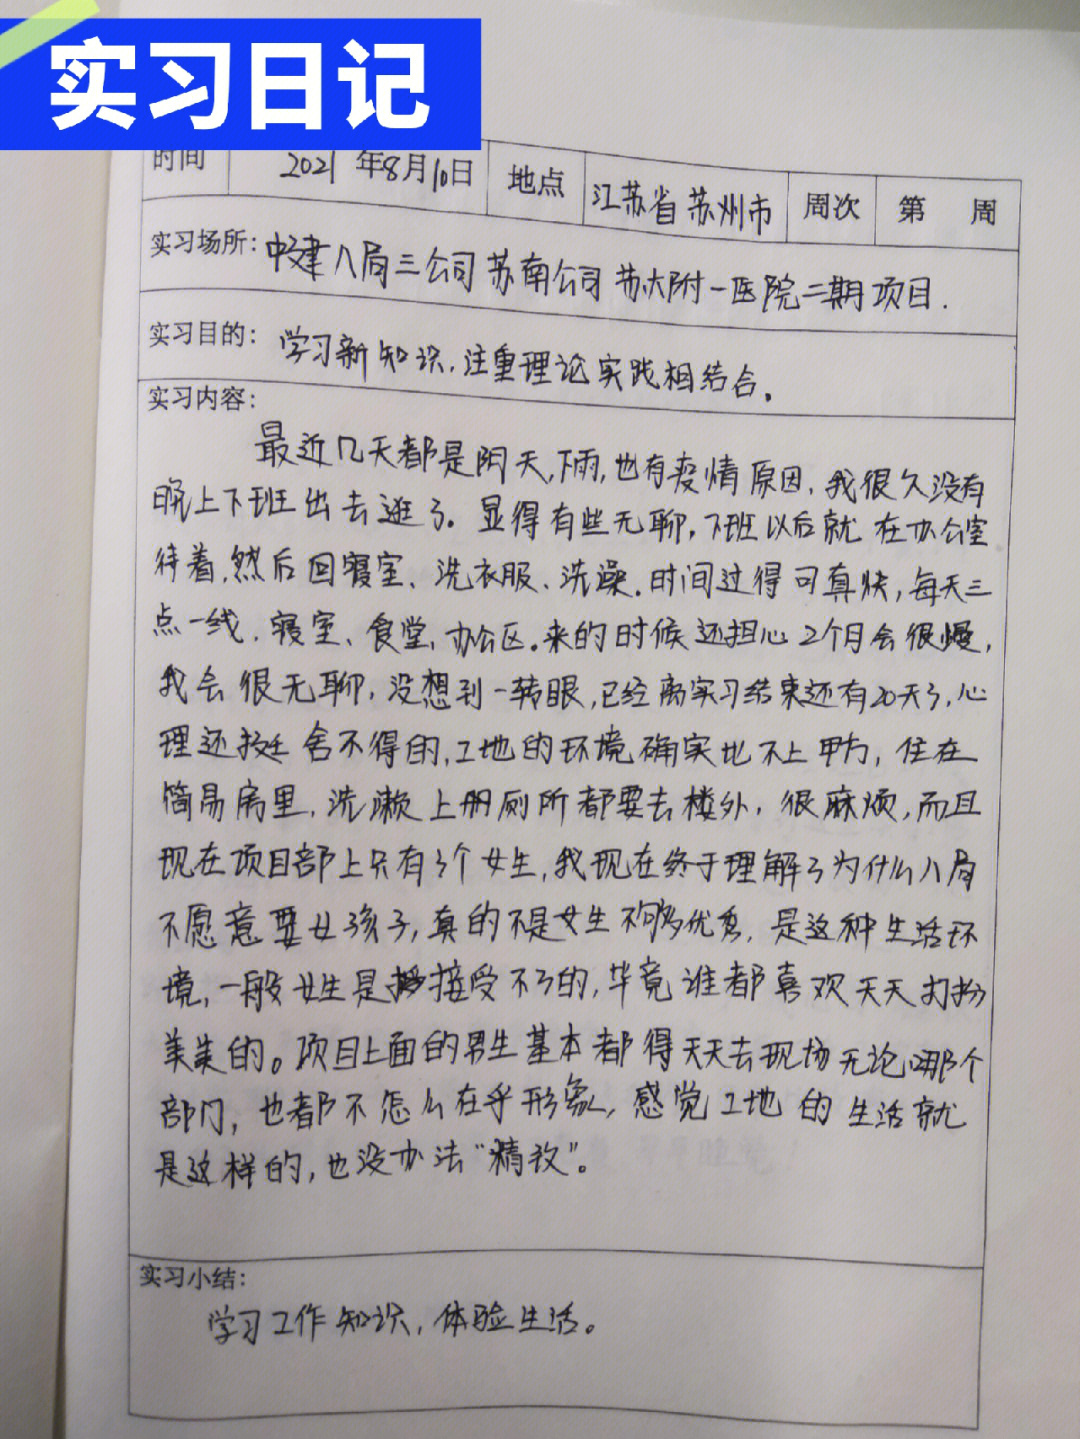 实习日记
时间 2021年8月10日 地点 江苏省苏州市 周次 第 周
实习场所: 中建八局三公司苏南公司苏大附一医院二期项目.
实习目的: 学习新知识,注重理论实践相结合.
实习内容:
最近几天都是阴天,下雨,也有疫情原因,我很久没有
晚上下班出去逛了。显得有些无聊,下班以后就在办公室
待着,然后回寝室、洗衣服、洗澡.时间过得可真快,每天三
点一线,寝室、食堂,办公区.来的时候还担心2个月会很慢,
我会很无聊,没想到一转眼,已经离实习结束还有20天了,心
理还挺舍不得的,工地的环境确实比不上甲方,住在
简易房里,洗漱上册厕所都要去楼外,很麻烦,而且
现在项目部上只有3个女生,我现在终于理解了为什么八局
不愿意要女孩子,真的不是女生不够优秀,是这种生活环
境,一般女生是接受不了的,毕竟谁都喜欢天天打扮
美美的。项目上面的男生基本都得天天去现场无论哪个
部门,也都不怎么在乎形象,感觉工地的生活就
是这样的,也没办法“精致”。
实习小结:
学习工作知识,体验生活。